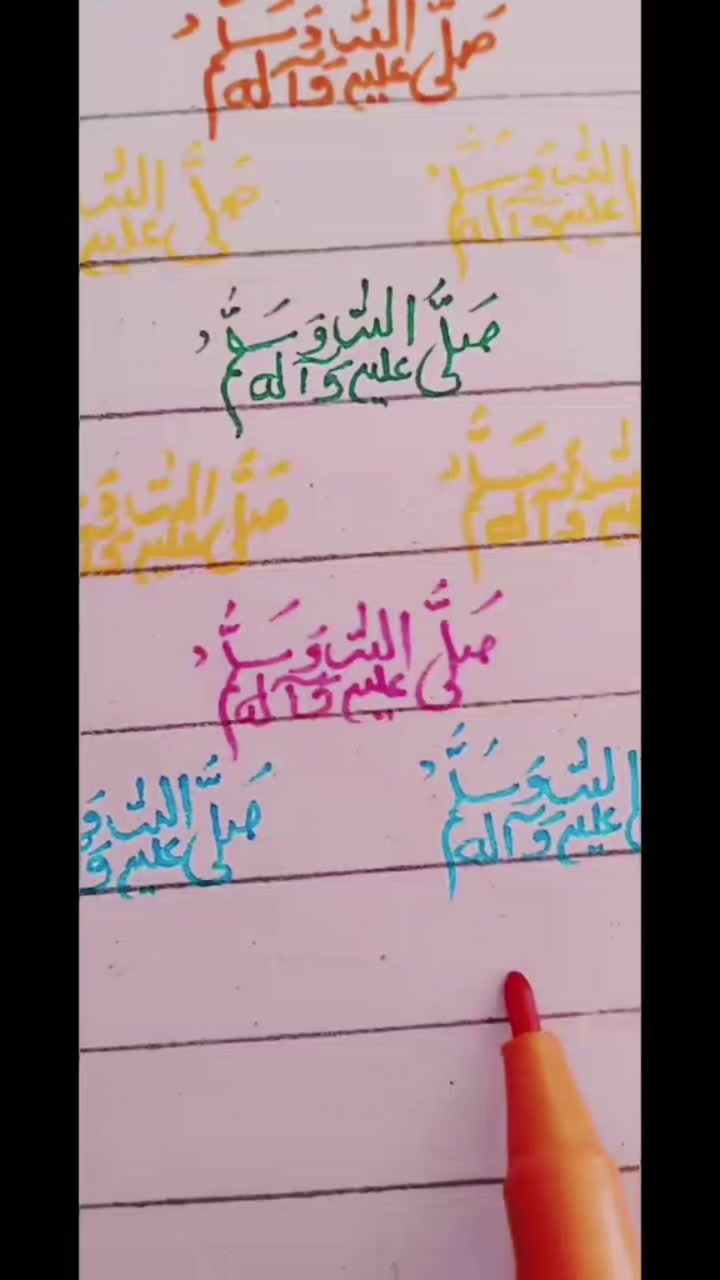 صَلَّى اللهُ عَلَيْهِ وَآلِهِ وَسَلَّم
صَلَّى اللهُ عليه وَسَلَّم وآله
صَلَّى اللهُ عليه وَآله وَسَلَّم
صَلَّى اللهُ عليه وَ وَسَلَّم وآله
صَلَّى اللهُ عليه وَآله وَسَلَّم
صَلَّى اللهُ عليه وَ اللهُ عليه وَآله وَسَلَّم